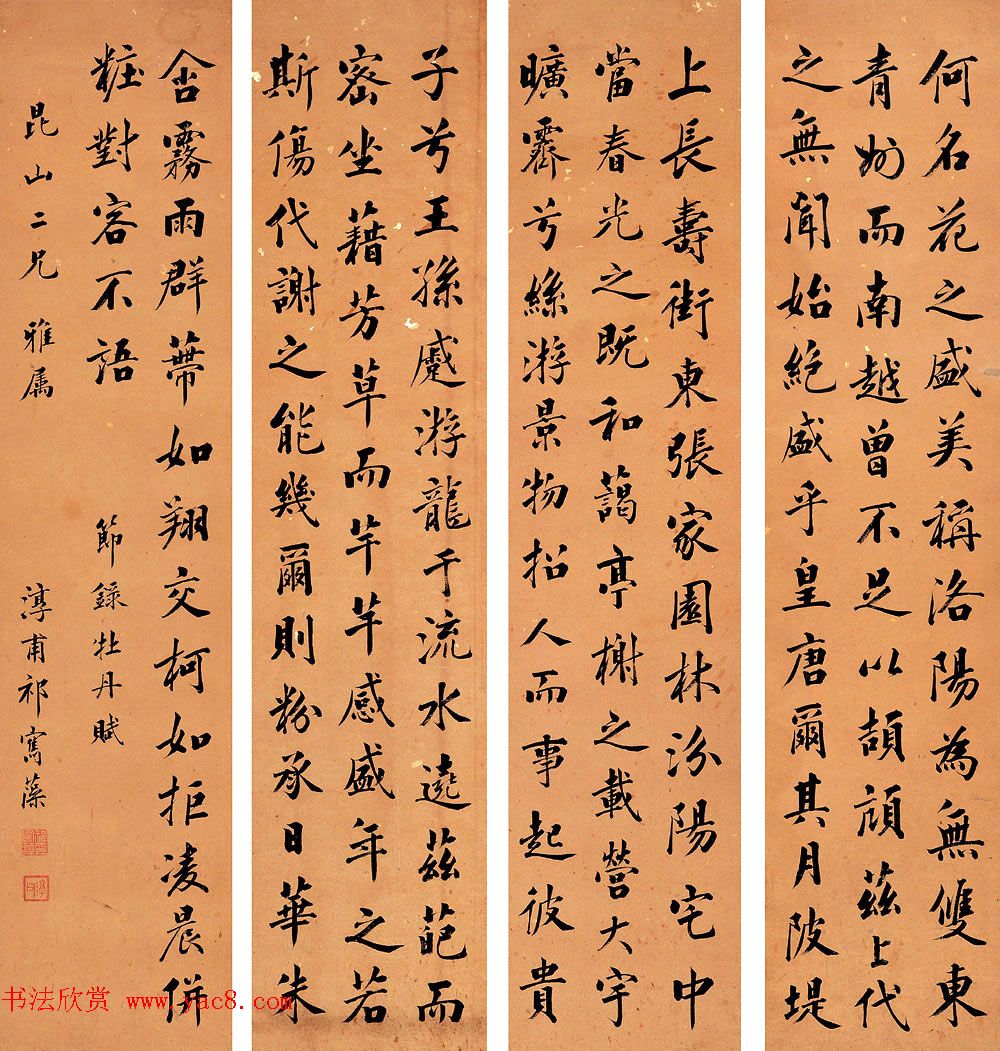 何名花之盛美稱洛陽為無雙東
青州而南越曾不足以頡頏茲上代
之無聞始絕盛乎皇唐爾其月陂堤
上長壽街東張家園林汾陽宅中
當春光之既和藹亭榭之載營大宇
曠霽兮絲游景物招人而事起彼貴
子兮王孫蹙游龍于流水遶茲葩而
密坐藉芳草而芊芊感盛年之若
斯傷代謝之能幾爾則粉承日華朱
含霧雨群蔕如翔交柯如拒凌晨併
粧對客不語
節錄牡丹賦
昆山二兄 雅屬
淳甫祁寯藻
书法欣赏 www.yac8.com